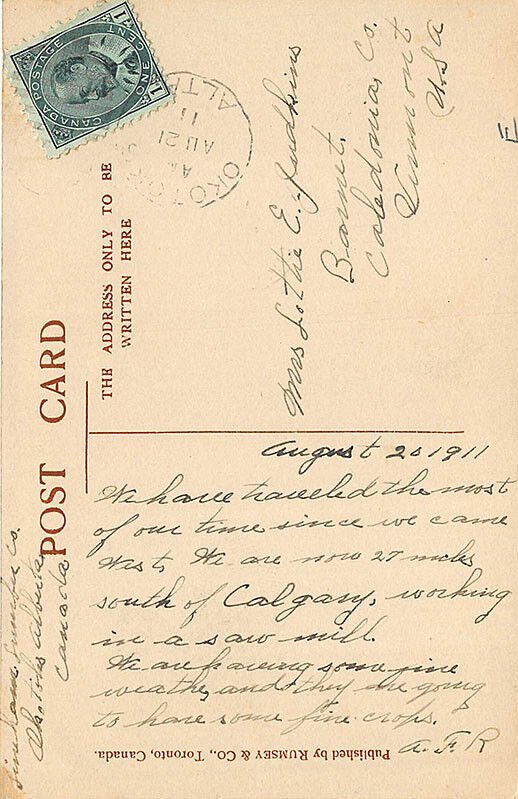 POST CARD
THE ADDRESS ONLY TO BE
WRITTEN HERE
CANADA POSTAGE
ONE CENT
1 1
OKOTOKS
AU 21
11
ALTA
Mrs Lottie E. Judkins
Barnet.
Caledonia, Co.
Vermont
U.S.A
E
August 20 1911
We have traveled the most
of our time since we came
West, We are now 27 miles
south of Calgary, working
in a saw mill.
We are having some fine
weather, and they are going
to have some fine crops.
A. F. R
Lumber co.
Okotoks Alberta
Canada
Published by RUMSEY & CO., Toronto, Canada.